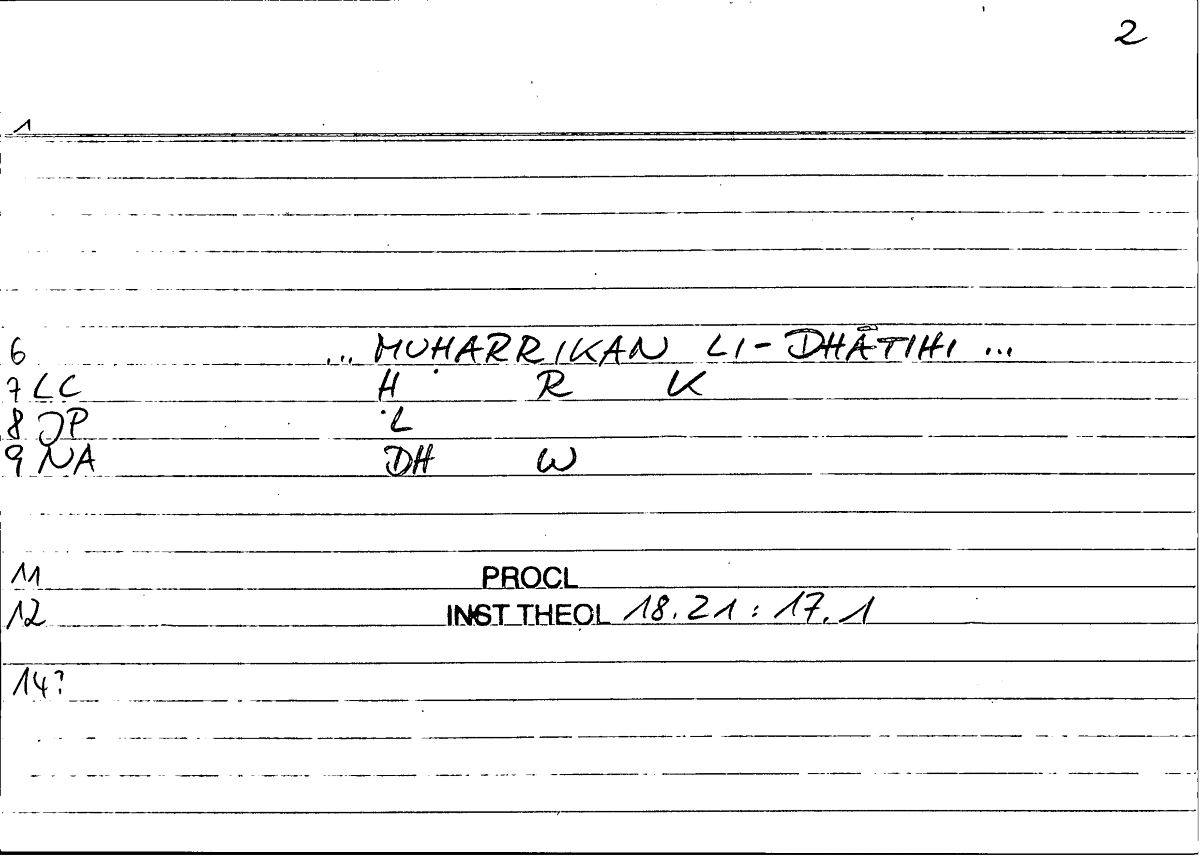 2
1
6 ... MUḤARRIKAN LI-DHĀTIHI ...
7 LC Ḥ R K
8 JP L
9 NA DH W
11 PROCL
12 INST THEOL 18.21 : 17.1
14?